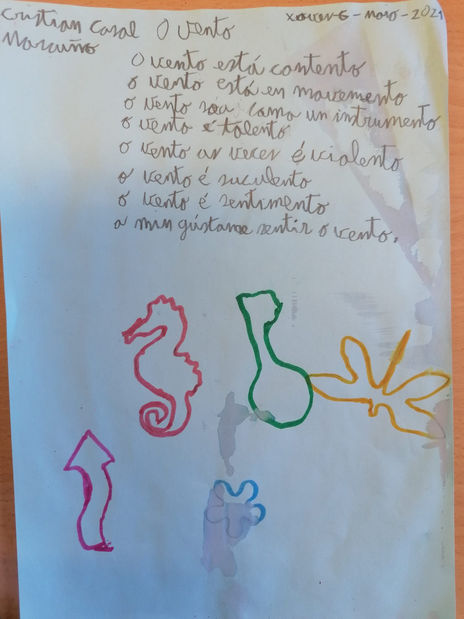 Cristian Casal O vento xoves-6-maio-2021
Marcuño
O vento está contento
o vento está en movemento
o vento soa como un instrumento
o vento é talento
o vento as veces é violento
o vento é suculento
o vento é sentimento
a min gústame sentir o vento.